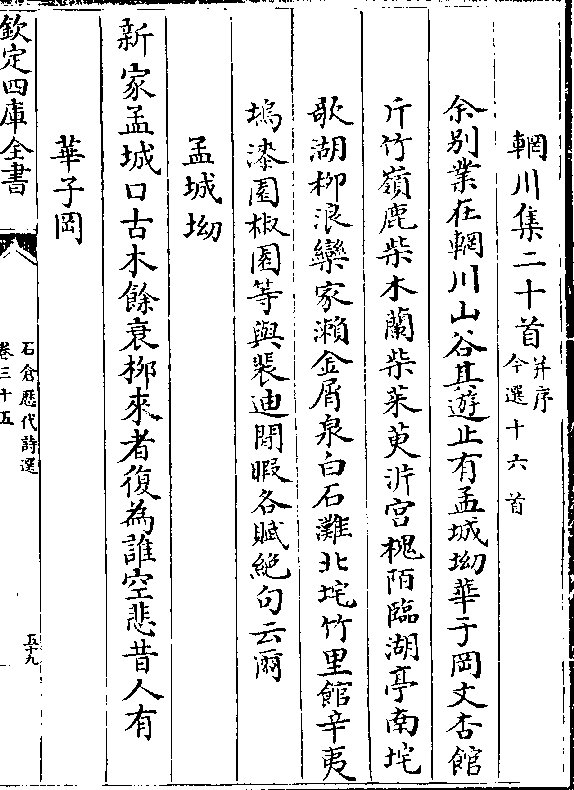 輞川集二十首并序今選十六首
余别業在輞川山谷其遊止有孟城坳華子岡文杏館
斤竹嶺鹿柴木蘭柴茱萸沜宫槐陌臨湖亭南垞
歌湖柳浪欒家瀨金屑泉白石灘北垞竹里館辛夷
塢漆園椒園等與裴迪閒暇各賦絶句云爾
孟城坳
新家孟城口古木餘衰柳來者復為誰空悲昔人有
華子岡
欽定四庫全書
石倉歴代詩選
卷三十五
五十九